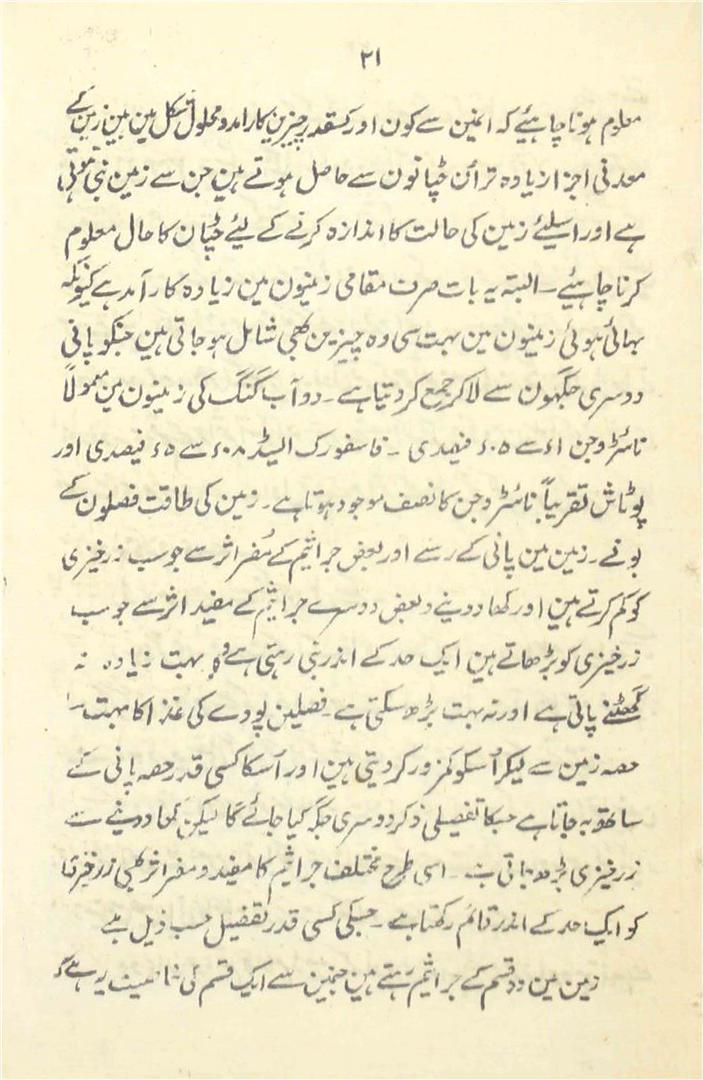 ۲۱
معلوم ہونا چاہئیے کہ انمین سے کون اور کسقدر چیزین کارآمد و محلول شکل مین ہین زمین کے
معدنی اجزا زیادہ تر اُن چٹانون سے حاصل ہوتے ہین جن سے زمین بنی ہوئی
ہے اور اسلیئے زمین کی حالت کا اندازہ کرنے کے لیئے چٹان کا حال معلوم
کرنا چاہئیے ۔ البتہ یہ بات صرف مقامی زمینون مین زیادہ کارآمد ہے کیونکہ
بہائی ہوئی زمینون مین بہت سی وہ چیزین بھی شامل ہو جاتی ہین جنکو پانی
دوسری جگہون سے لا کر جمع کر دیتا ہے ۔ دوآب گنگ کی زمینون مین معمولاً
نائٹروجن ۱ء سے ۰۵ء فیصدی ۔ فاسفورک ایسڈ ۰۸ء سے ۵ء فیصدی اور
پوٹاش تقریباً نائٹروجن کا نصف موجود ہوتا ہے ۔ زمین کی طاقت فصلون کے
بونے ۔ زمین مین پانی کے رسنے اور بعض جراثیم کے مُضر اثر سے جو سب زرخیزی
کو کم کرتے ہین اور کھاد دینے و بعض دوسرے جراثیم کے مفید اثر سے جو سب
زرخیزی کو بڑھاتے ہین ایک حد کے اندر بنی رہتی ہے بہت زیادہ نہ
گھٹنے پاتی ہے اور نہ بہت بڑھ سکتی ہے ۔ فصلین پودے کی غذا کا بہت سا
حصہ زمین سے لیکر اُسکو کمزور کر دیتی ہین اور اُسکا کسی قدر حصہ پانی کے
ساتھ بہ جاتا ہے جسکا تفصیلی ذکر دوسری جگہ کیا جائے گا لیکن کھاد دینے سے
زرخیزی بڑھ جاتی ہے ۔ اسی طرح مختلف جراثیم کا مفید و مضر اثر بھی زرخیزی
کو ایک حد کے اندر قائم رکھتا ہے ۔ جسکی کسی قدر تفصیل حسب ذیل ہے
زمین مین دو قسم کے جراثیم رہتے ہین جنمین سے ایک قسم کی خاصیت یہ ہے کہ